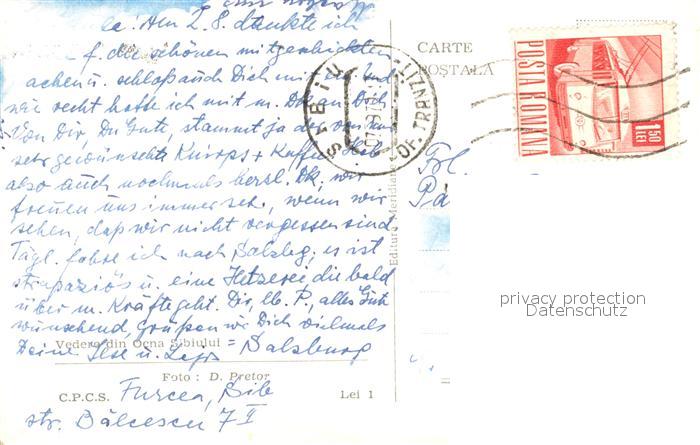 Am 2.8. dankte ich
f. die schönen mitgeschickten
Sachen u. schloß auch Dich mit ein. Und
wie recht hatte ich mit m. Dk. an Dich
Von Dir, Du Gute, stammt ja der von uns
sehr gewünschte Kaffee
also auch nochmals herzl. Dk, wir
freuen uns immer sehr, wenn wir
sehen, daß wir nicht vergessen sind
Tägl. fahre ich nach Salzbg, es ist
strapaziös u. eine Hetzerei die bald
über m. Kräfte geht. Dir, lb. P, alles Gute
wünschend, grüßen wir Dich vielmals
Deine Ilse u.
Vedere din Ocna Sibiului = Salzburg
Foto: D. Pretor
C.P.C.S. Lei 1
Furcea, Sib
str. Bălcescu 7 II
Editura Meridiane
CARTE
POȘTALĂ
SIBIU
OF. TR.
POSTA ROMANA
1,50
LEI
Frl.
Pá
privacy protection
Datenschutz